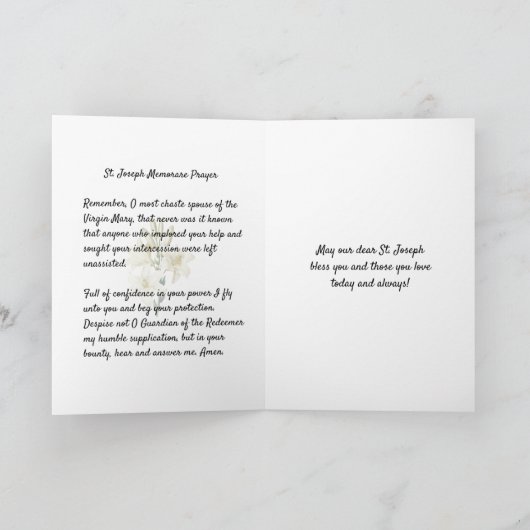 St. Joseph Memorare Prayer
Remember, O most chaste spouse of the
Virgin Mary, that never was it known
that anyone who implored your help and
sought your intercession were left
unassisted.
Full of confidence in your power I fly
unto you and beg your protection.
Despise not O Guardian of the Redeemer
my humble supplication, but in your
bounty, hear and answer me. Amen.
May our dear St. Joseph
bless you and those you love
today and always!